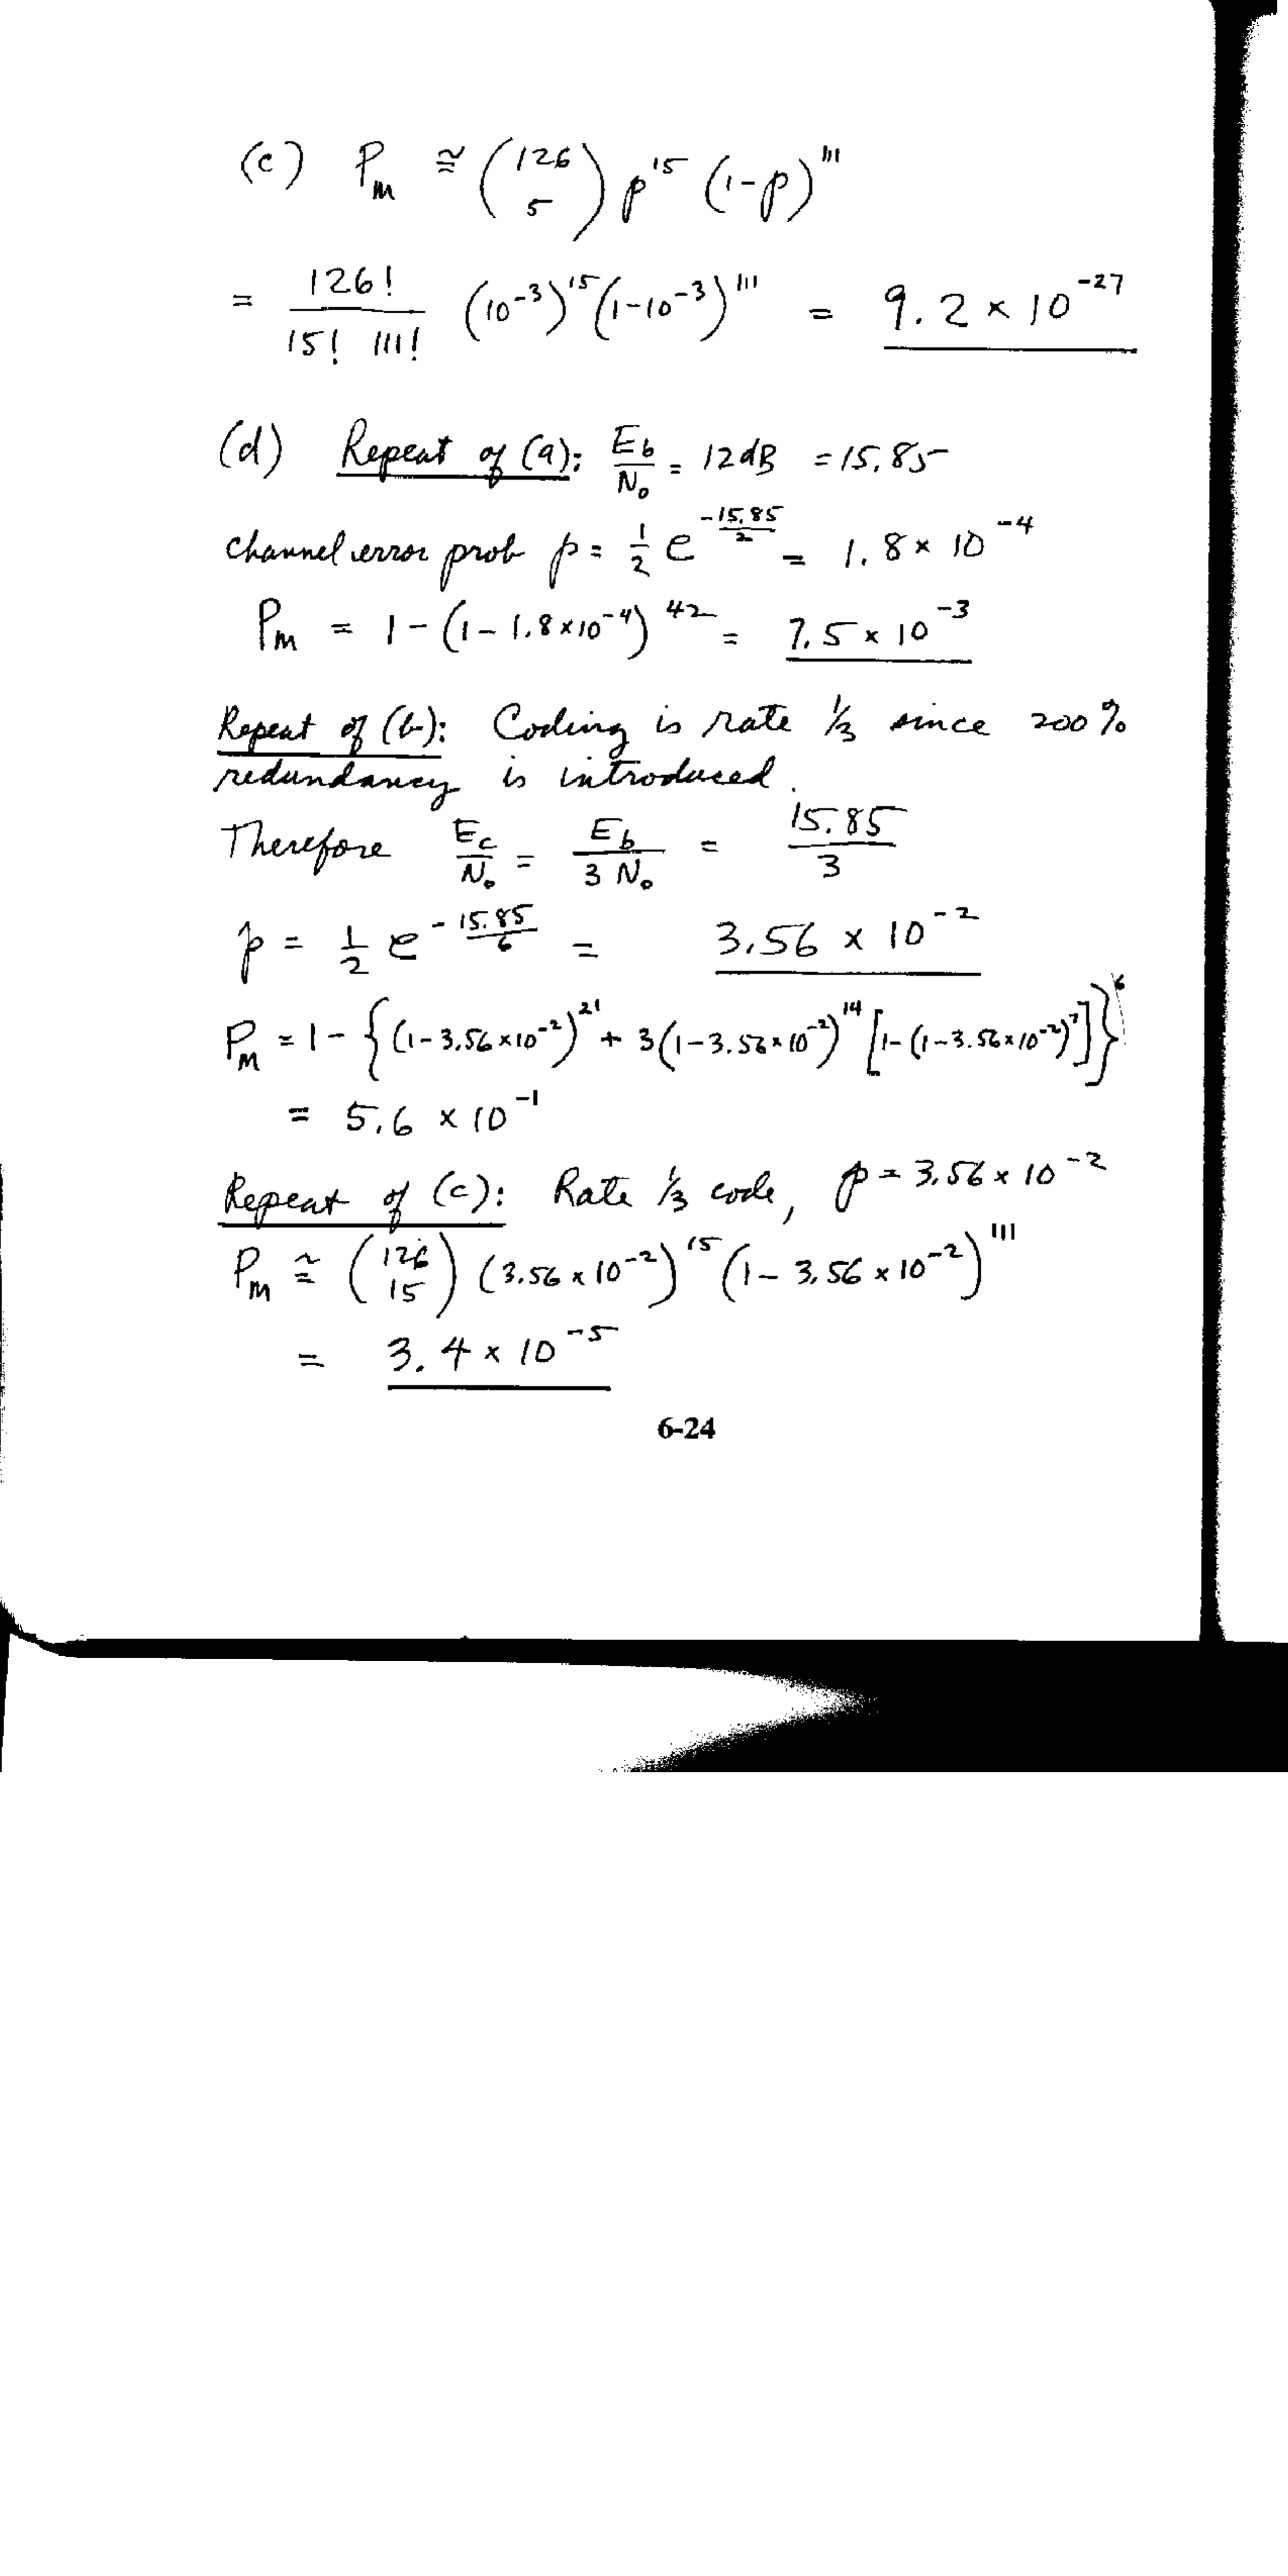 (c) Pm ≅ (126 5) p^15 (1-p)^111
= 126! / 15! 111! (10^-3)^15 (1-10^-3)^111 = 9.2 × 10^-27
(d) Repeat of (a): Eb/No = 12dB = 15.85
channel error prob p = 1/2 e^(-15.85/2) = 1.8 × 10^-4
Pm = 1 - (1 - 1.8×10^-4)^42 = 7.5 × 10^-3
Repeat of (b): Coding is rate 1/3 since 200%
redundancy is introduced.
Therefore Ec/No = Eb/3 No = 15.85/3
p = 1/2 e^(-15.85/6) = 3.56 × 10^-2
PM = 1 - {(1-3.56×10^-2)^21 + 3(1-3.56×10^-2)^14 [1-(1-3.56×10^-2)^7]}^6
= 5.6 × 10^-1
Repeat of (c): Rate 1/3 code, p = 3.56 × 10^-2
Pm ≅ (126 15) (3.56 × 10^-2)^15 (1 - 3.56 × 10^-2)^111
= 3.4 × 10^-5
6-24